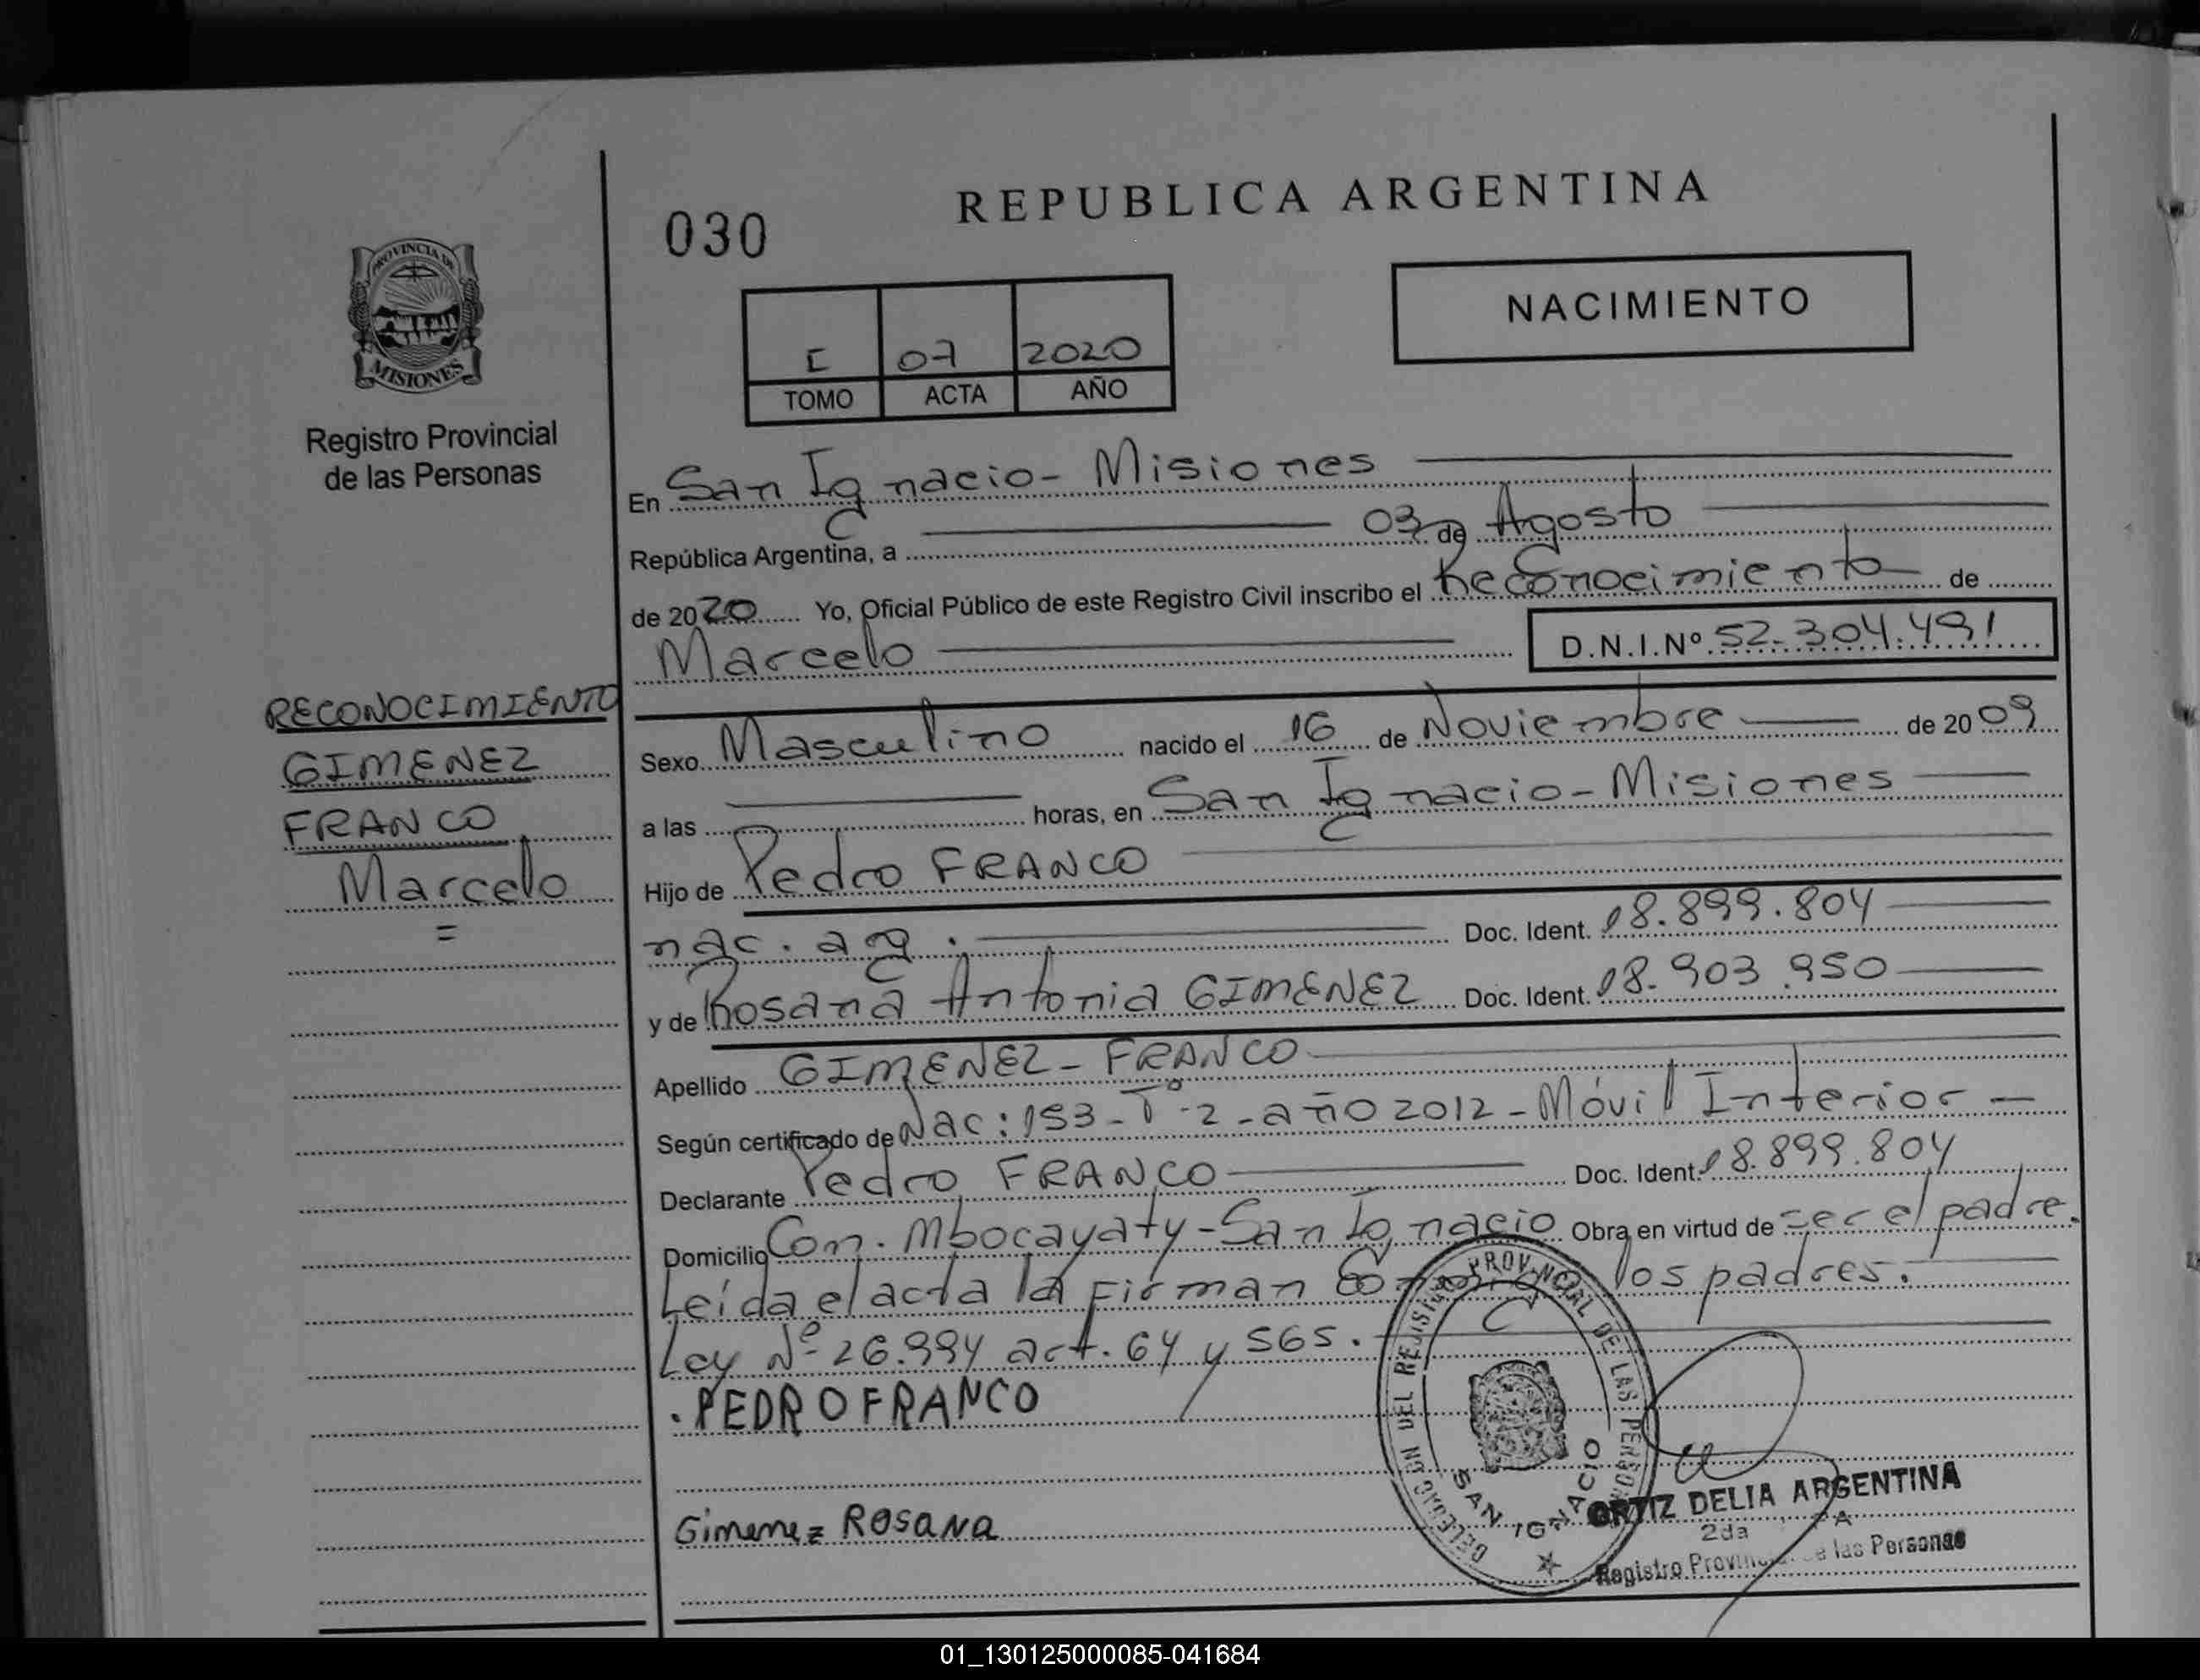 REPUBLICA ARGENTINA
030
NACIMIENTO
I 07 2020
TOMO ACTA AÑO
PROVINCIA DE
MISIONES
Registro Provincial
de las Personas
En San Ignacio - Misiones
República Argentina, a 03 de Agosto
de 2020 Yo, Oficial Público de este Registro Civil inscribo el Reconocimiento de
Marcelo D.N.I.Nº 52.304.491
RECONOCIMIENTO
GIMENEZ
FRANCO
Marcelo
=
Sexo Masculino nacido el 16 de Noviembre de 2009
a las horas, en San Ignacio - Misiones
Hijo de Pedro FRANCO
nac. arg. Doc. Ident. 18.899.804
y de Rosana Antonia GIMENEZ Doc. Ident. 18.903.950
Apellido GIMENEZ - FRANCO
Según certificado de Nac: 153 - Tº - 2 - año 2012 - Móvil Interior -
Declarante Pedro FRANCO Doc. Ident. 18.899.804
Domicilio Com. Mbocayaty - San Ignacio Obra en virtud de ser el padre.
Leída el acta la Firman Conmigo los padres.
Ley Nº 26.994 act. 64 y 565.
. PEDRO FRANCO
Gimenez ROSANA
DELEGACION DEL REGISTRO PROVINCIAL DE LAS PERSONAS
SAN IGNACIO
ORTIZ DELIA ARGENTINA
2da
Registro Provincial de las Personas
01_130125000085-041684